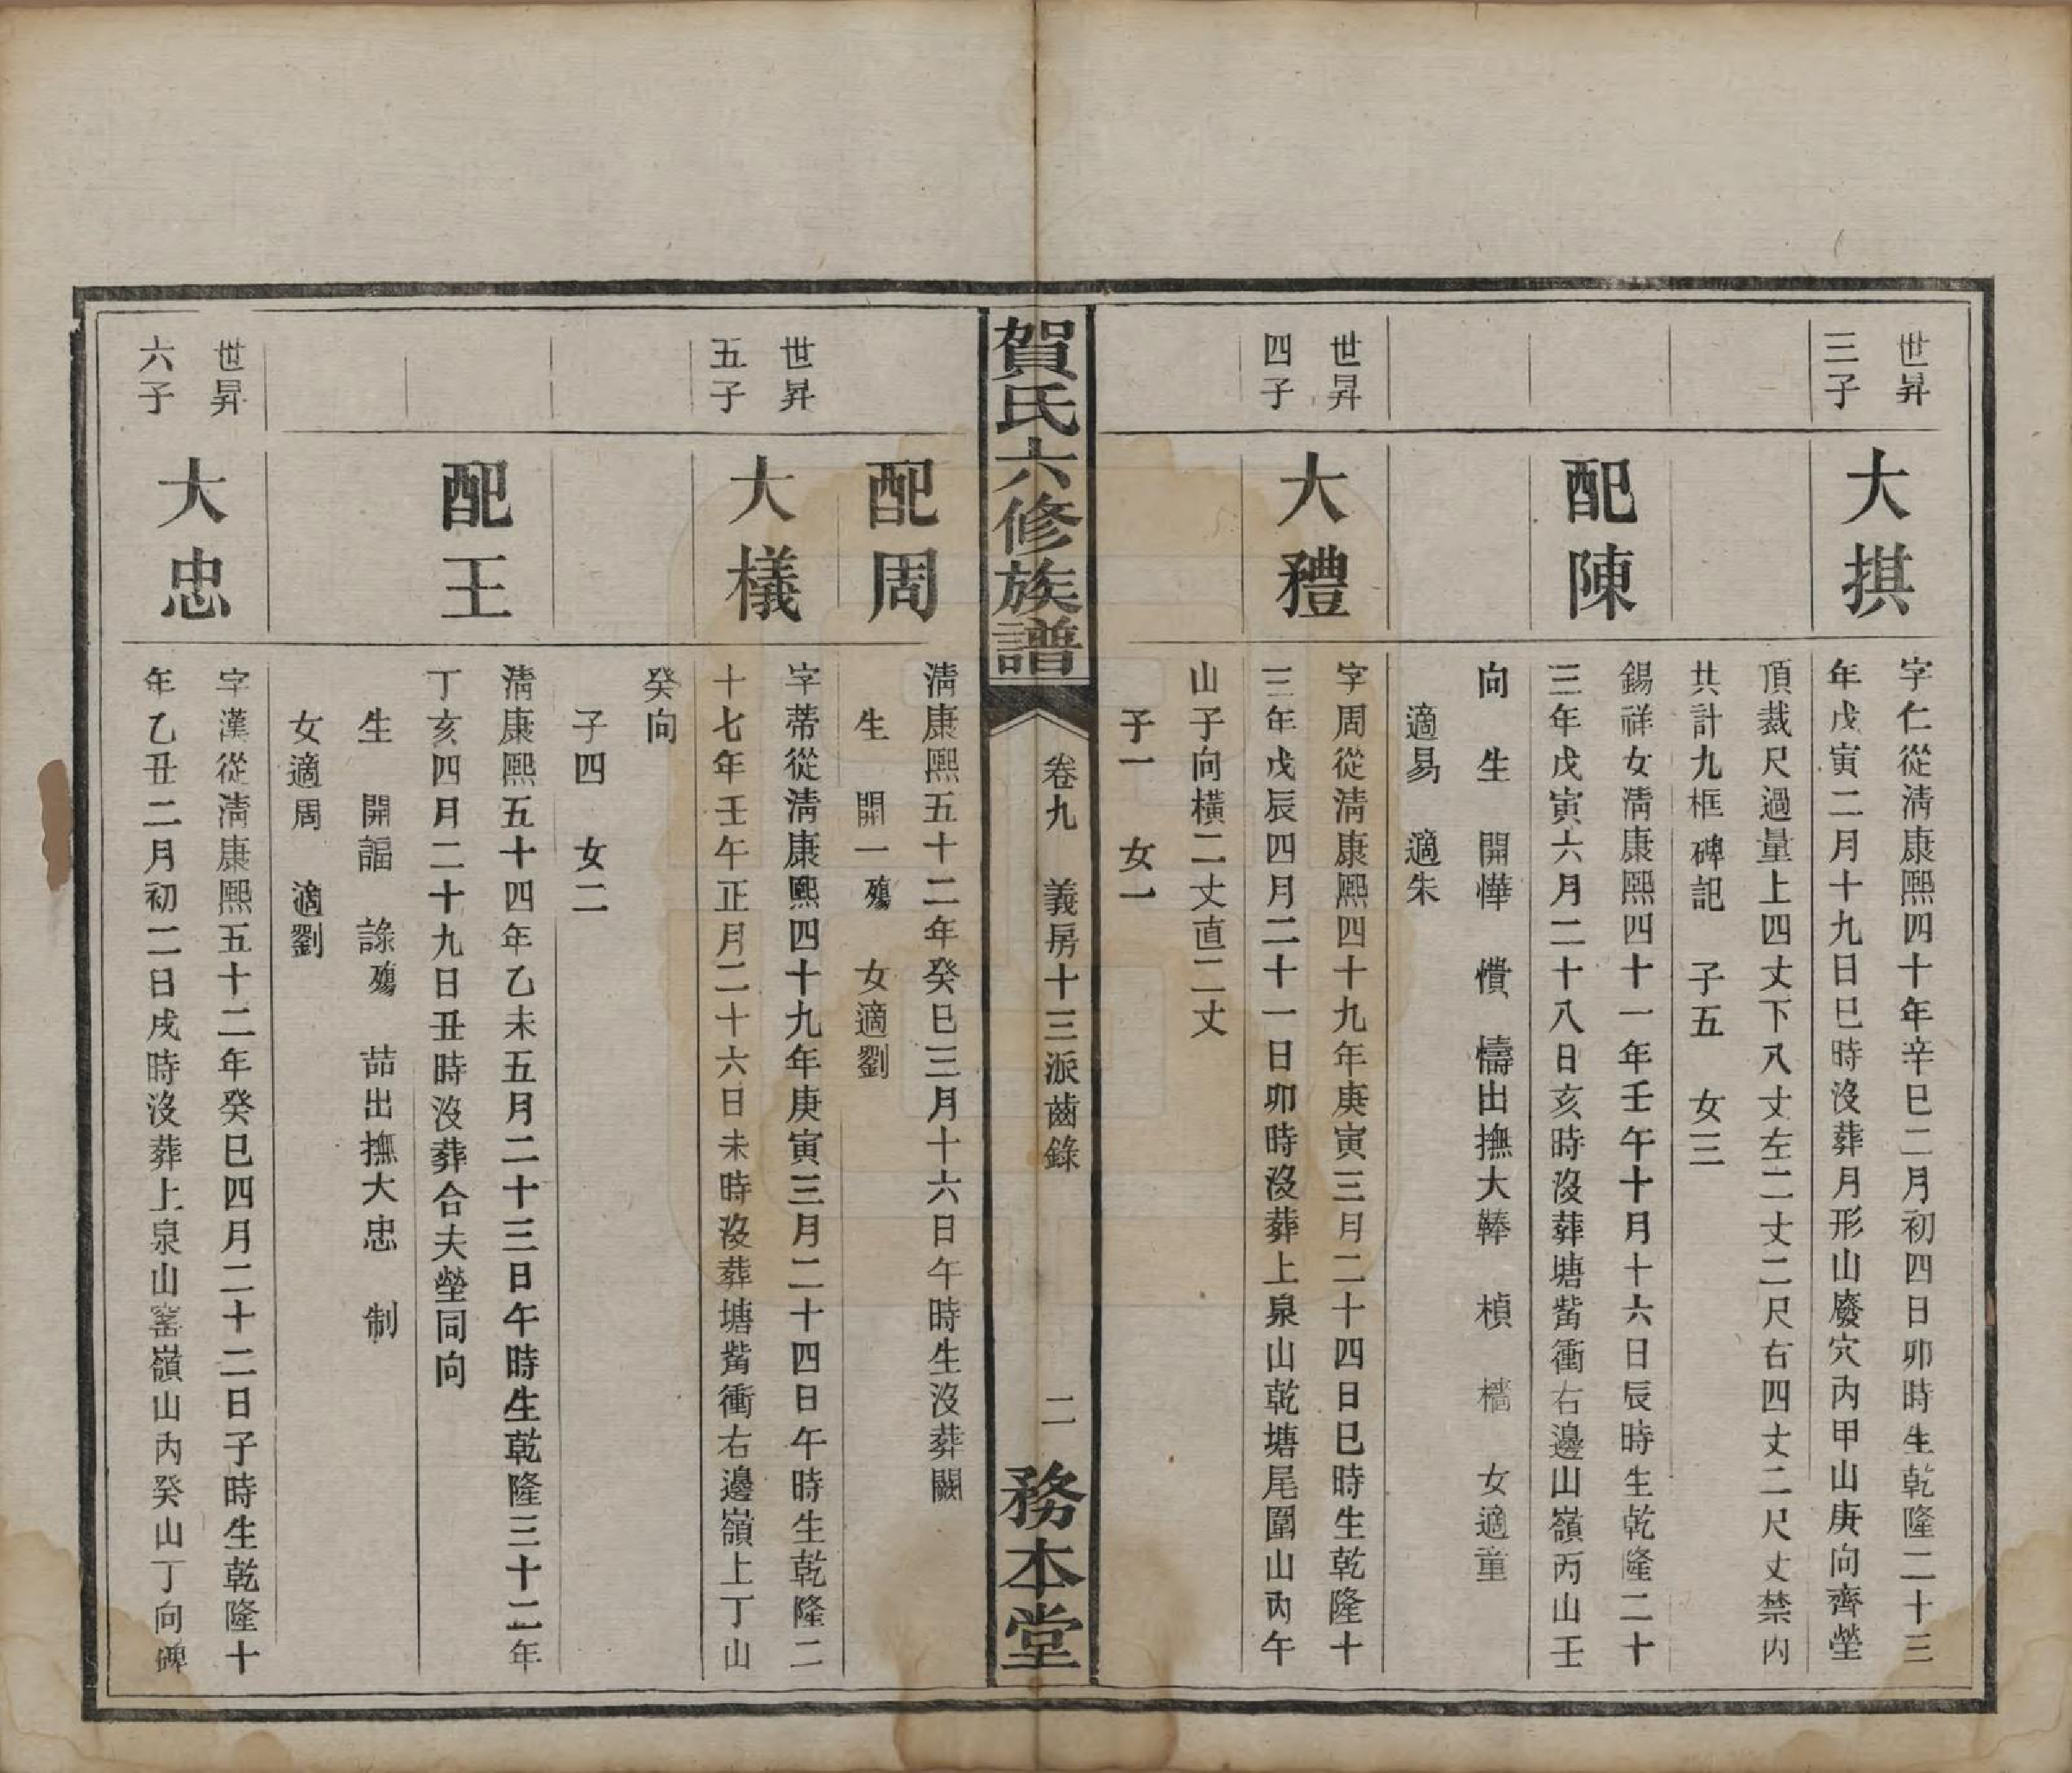 世昇
三子
大掑
字仁從淸康熙四十年辛巳二月初四日卯時生乾隆二十三
年戊寅二月十九日巳時沒葬月形山廢穴內甲山庚向齊塋
頂裁尺過量上四丈下八丈左二丈二尺右四丈二尺丈禁內
共計九框碑記 子五 女三
配陳
錫祥女淸康熙四十一年壬午十月十六日辰時生乾隆二十
三年戊寅六月二十八日亥時沒葬塘觜衝右邊山嶺丙山壬
向 生 開㦊 憒 懤出撫大㨋 楨 檣 女適童
適易 適朱
世昇
四子
大禮
字周從淸康熙四十九年庚寅三月二十四日巳時生乾隆十
三年戊辰四月二十一日卯時沒葬上泉山乾塘尾圍山內午
山子向橫二丈直二丈
子一 女一
賀氏六修族譜
卷九 義房十三派齒錄 二
務本堂
配周
淸康熙五十二年癸巳三月十六日午時生沒葬闕
生 開一殤 女適劉
世昇
五子
大檥
字蒂從淸康熙四十九年庚寅三月二十四日午時生乾隆二
十七年壬午正月二十六日未時沒葬塘觜衝右邊嶺上丁山
癸向
子四 女二
配王
淸康熙五十四年乙未五月二十三日午時生乾隆三十二年
丁亥四月二十九日丑時沒葬合夫塋同向
生 開諨 諑殤 詰出撫大忠 制
女適周 適劉
世昇
六子
大忠
字漢從淸康熙五十二年癸巳四月二十二日子時生乾隆十
年乙丑二月初二日戌時沒葬上泉山窰嶺山內癸山丁向碑